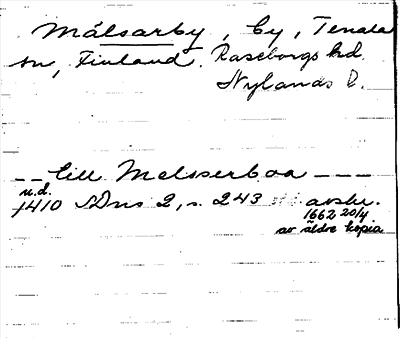 Målsarby, by, Tenala
sn, Finland. Raseborgs hd.
Nylands l.
-- till Melsserboa ---
u.d.
1410 SDns 2, s. 243 avskr.
1662 20/4
av äldre kopia